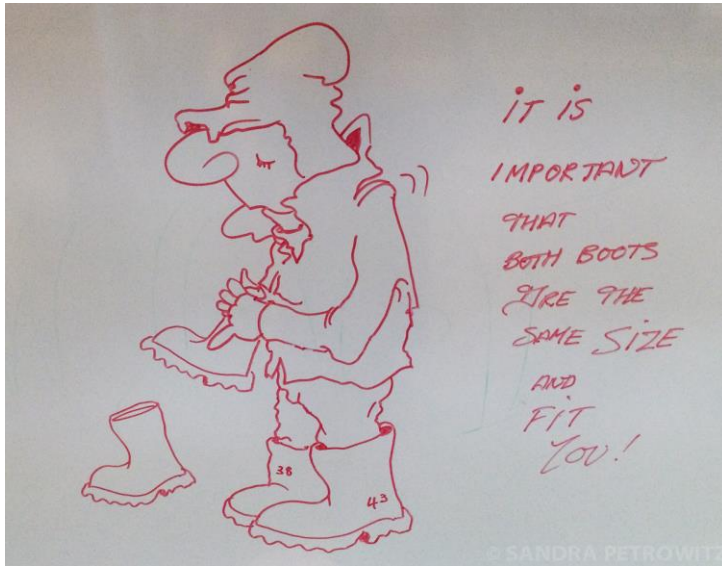 iT iS
IMPORTANT
THAT
BOTH BOOTS
ARE THE
SAME SiZE
AND
FiT
YOU!
38
43
© SANDRA PETROWITZ